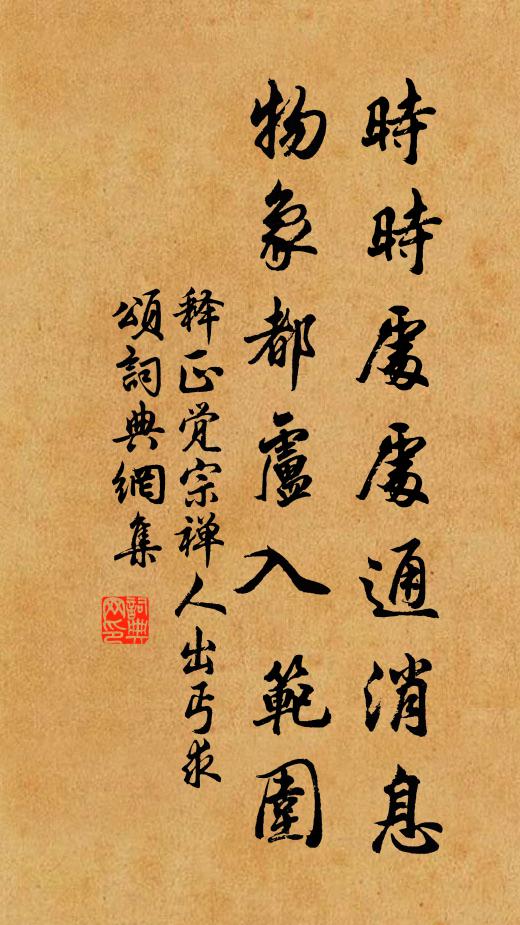 時時處處通消息
物象都盧入範圍
释正觉宗禅人出丐求
頌詞典網集
詞典网印